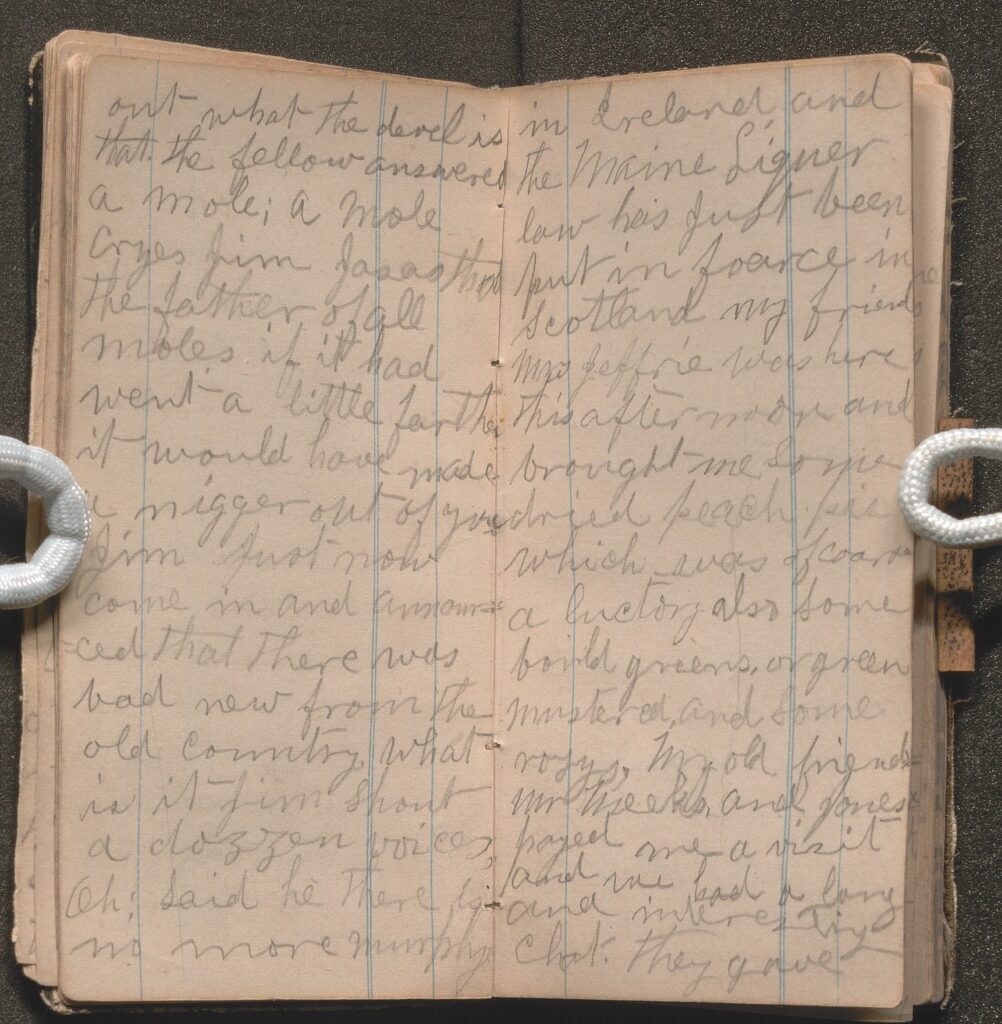 out what the devel is
that. the fellow answered
a mole; a mole
cryes Jim Jasas thou
the father of all
moles if it had
went a little farther
it would have made
a nigger out of you
Jim Just now
come in and announ=
=ced that there was
bad new from the
old country, what
is it Jim shout
a dozzen voices,
Oh; said he there is
no more murphy
in Ireland, and
the Maine Liquer
law has Just been
put in foarce in
Scotland my friend
Mrs Jeffrie was here
this after noon and
brought me some
dried peach pie
which was of coars
a luctory also some
boild greens, or green
musterd, and some
rosys, My old friends
Mr Meeks, and Jones
payed me a visit
and we had a long
and interesting
chat. they gave